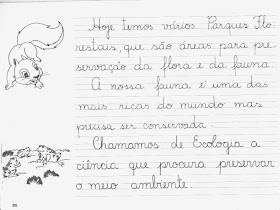 Hoje temos vários Parques Flo-
restais, que são áreas para pre-
servação da flora e da fauna.
A nossa fauna é uma das
mais ricas do mundo mas
precisa ser conservada.
Chamamos de Ecologia a
ciência que procura preservar
o meio ambiente.